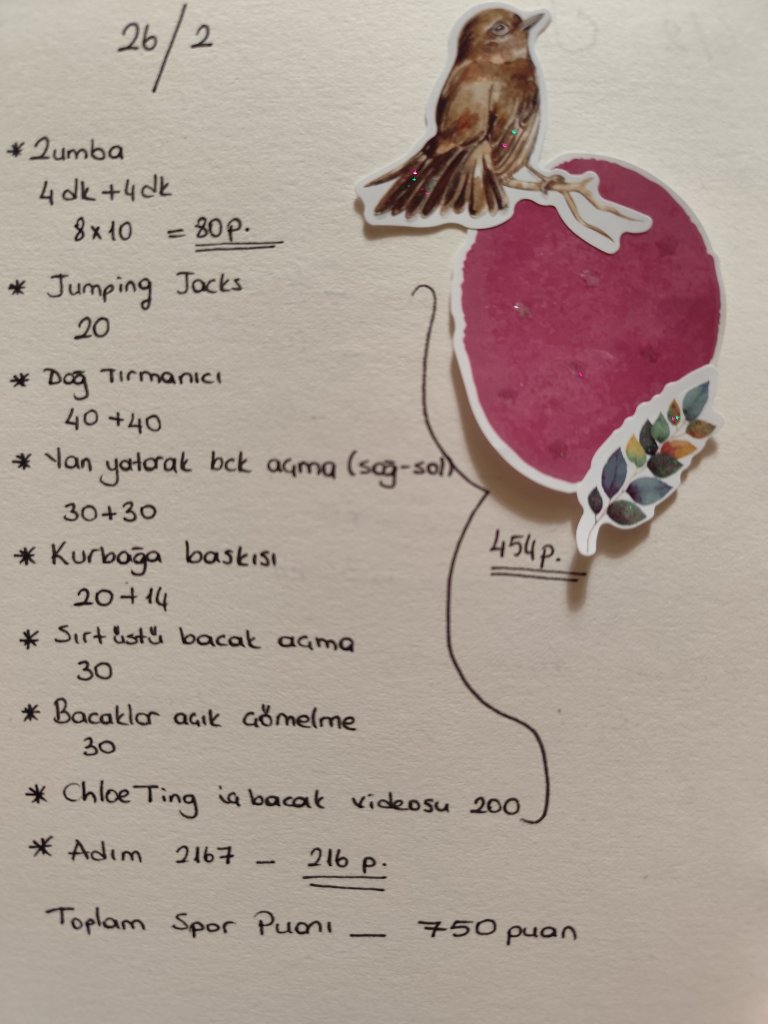 26/2
* Zumba
4 dk + 4 dk
8 x 10 = 80 p.
* Jumping Jacks
20
* Dağ Tırmanıcı
40 + 40
* Yan yatarak bck açma (sağ-sol)
30 + 30
* Kurbağa baskısı
20 + 14
* Sırtüstü bacak açma
30
* Bacaklar açık çömelme
30
* Chloe Ting iç bacak videosu 200
454 p.
* Adım 2167 — 216 p.
Toplam Spor Puanı — 750 puan